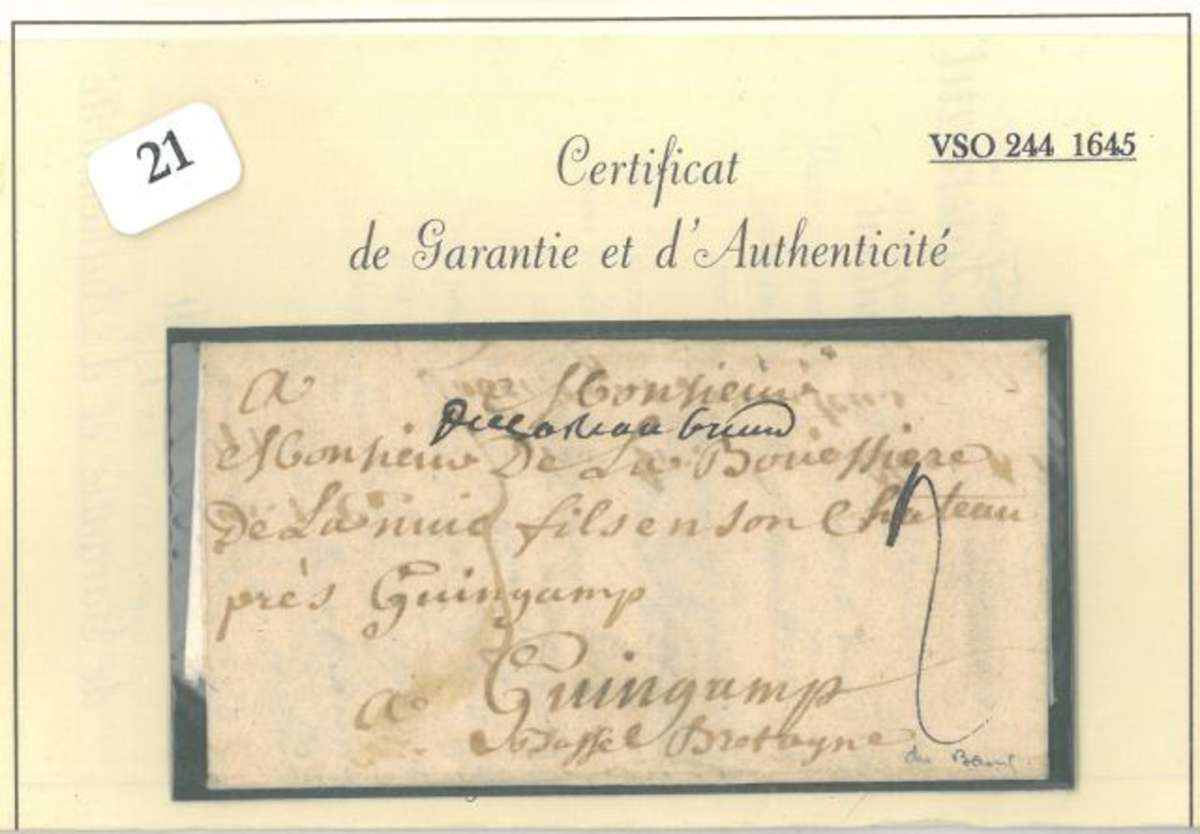 21
VSO 244 1645
Certificat
de Garantie et d'Authenticité
A Monsieur
Monsieur De La Bouessiere
De La fils en son Chateau
près Guingamp
a Guingamp
Basse Bretagne
du